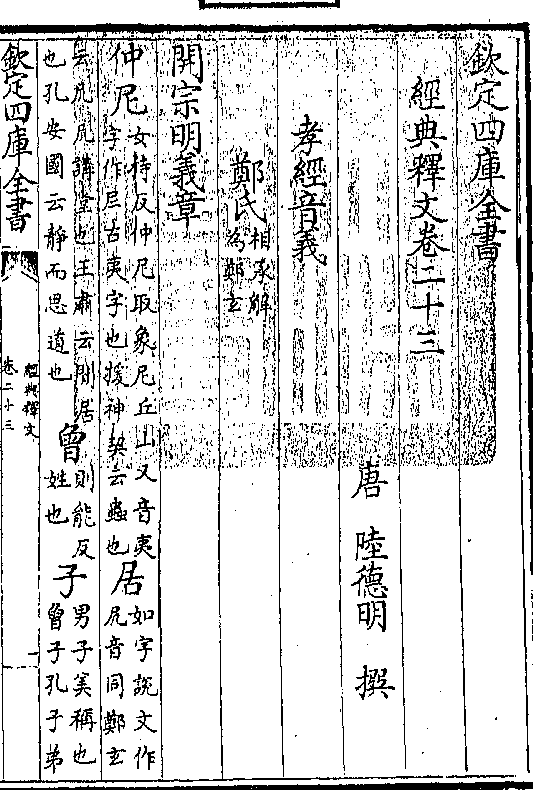 欽定四庫全書
經典釋文卷二十三
唐 陸德明 撰
孝經音義
鄭氏相承解為鄭玄
開宗明義章
仲尼女持反仲尼取象尼丘山又音夷字作𡰥古夷字也援神契云蠱也居如字說文作凥音同鄭玄
云凥凥講堂也王肅云閒居也孔安國云靜而思道也曾則能反姓也子男子美稱也曾子孔子弟
欽定四庫全書
經典釋文
卷二十三
一